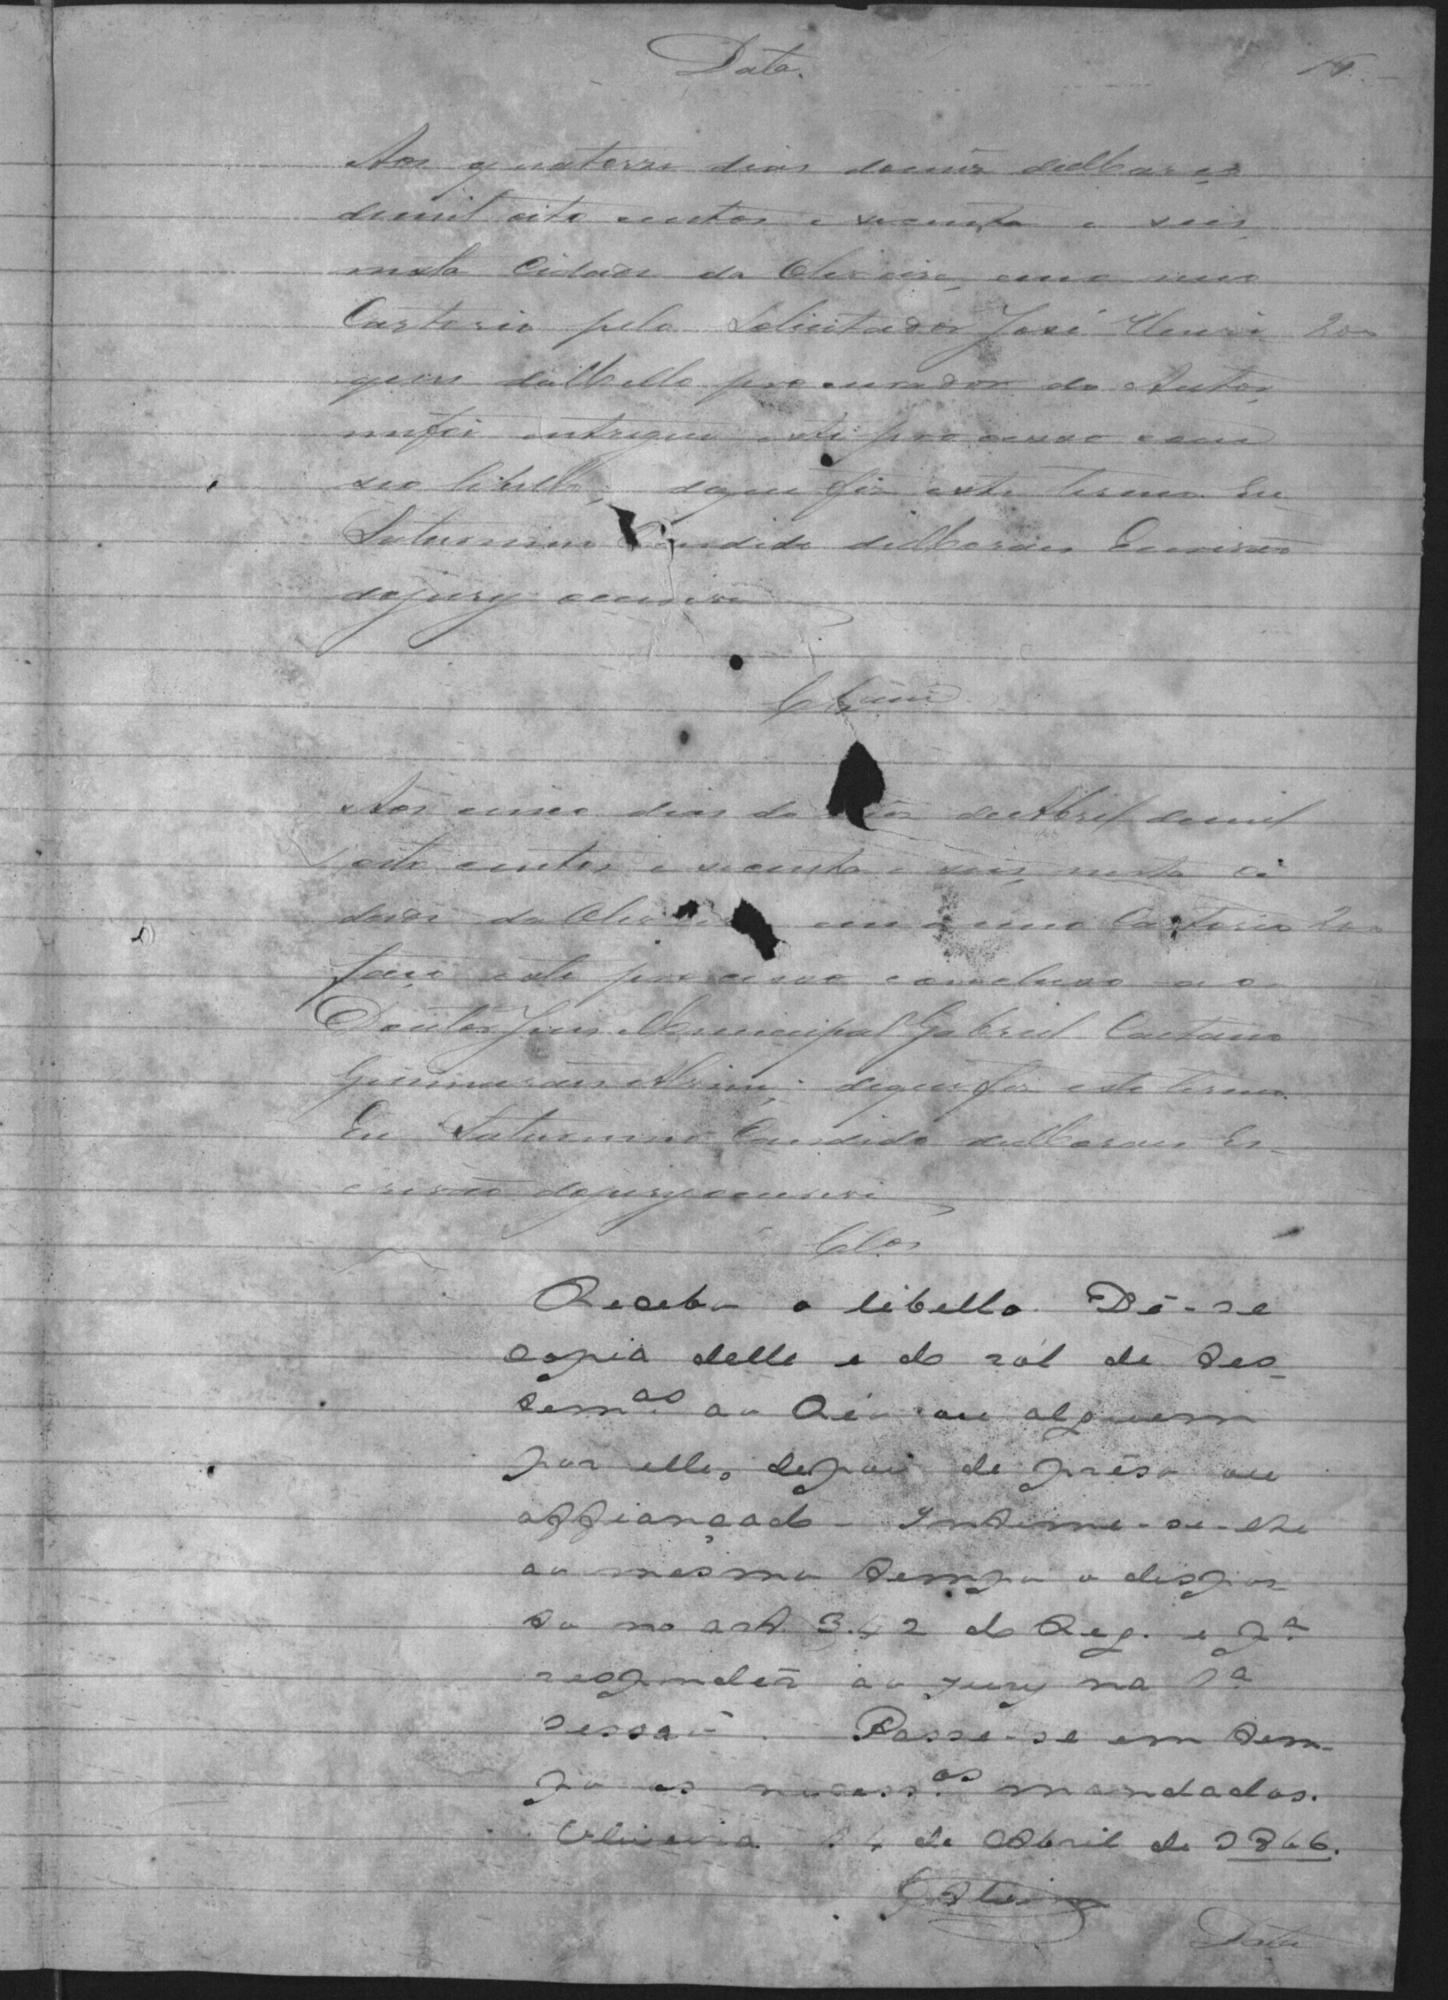 Data.
Aos quatorze dias domêz deMarço
demil oito centos e secenta e seis
nesta Cidade da Oliveira, emo meu
Cartorio pelo Solicitador José Henri 200
ques deMello procurador do Autor,
mefoi entregue este processo com
seo libello; doque fiz este termo. Eu
Saturnino Candido deMoraes Escrivão
dojury oescrevi
Clsam
Aos cinco dias do mêz deAbril demil
oito centos e secenta e seis, nesta ci
dade da Oliveira em o meo Cartorio 200
faço este processo concluso ao
Doutor Juis Municipal Gabriel Caetano
Guimarães Alvim; doque fiz este termo.
Eu Saturnino Candido deMoraes Es-
crivão dojury oescrevi
Clos
Recebo o libello. Dê-se
copia delle e do ról de tes-
temas. ao Réo ou alguem
por elle, depois de prêso ou
affiançado - Intime-se-lhe
ao mesmo tempo o dispos
to no art. 342 do Reg. e pa
respondêr ao jury na 1a
sessaõ. Passe-se em tem-
po os necessos. mandados.
Oliveira 14 de Abril de 1866.
Data